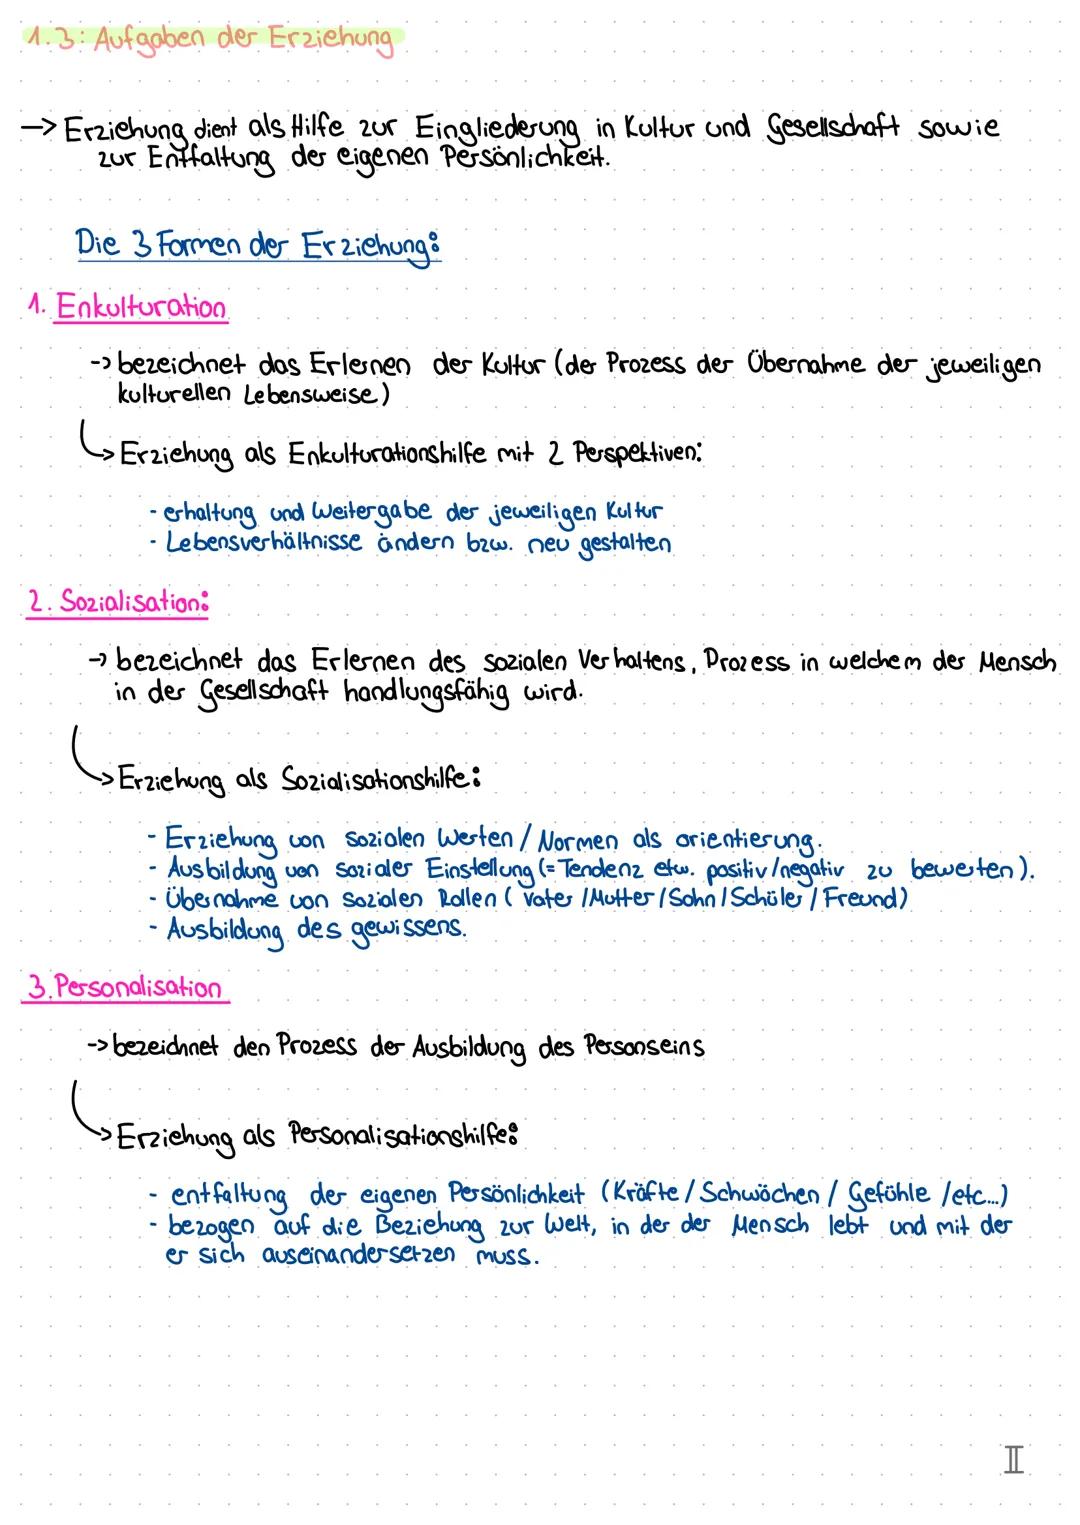 1.3: Aufgaben der Erziehung
→ Erziehung dient als Hilfe zur Eingliederung in Kultur und Gesellschaft sowie
zur Entfaltung der eigenen Persönlichkeit.
Die 3 Formen der Erziehung:
1. Enkulturation
-> bezeichnet das Erlernen der Kultur (der Prozess der Übernahme der jeweiligen
kulturellen Lebensweise)
↳ Erziehung als Enkulturationshilfe mit 2 Perspektiven:
- erhaltung und Weitergabe der jeweiligen Kultur
- Lebensverhältnisse ändern bzw. neu gestalten
2. Sozialisation:
→ bezeichnet das Erlernen des sozialen Verhaltens, Prozess in welchem der Mensch
in der Gesellschaft handlungsfähig wird.
↳ Erziehung als Sozialisationshilfe:
- Erziehung von sozialen Werten / Normen als orientierung.
- Ausbildung von sozialer Einstellung (= Tendenz etw. positiv/negativ zu bewerten).
- Übernahme von sozialen Rollen ( Vater /Mutter /Sohn / Schüler / Freund)
- Ausbildung des gewissens.
3. Personalisation
-> bezeichnet den Prozess der Ausbildung des Personseins
↳ Erziehung als Personalisationshilfe:
- entfaltung der eigenen Persönlichkeit (Kräfte / Schwächen / Gefühle /etc...)
- bezogen auf die Beziehung zur Welt, in der der Mensch lebt und mit der
er sich auseinandersetzen muss.
II